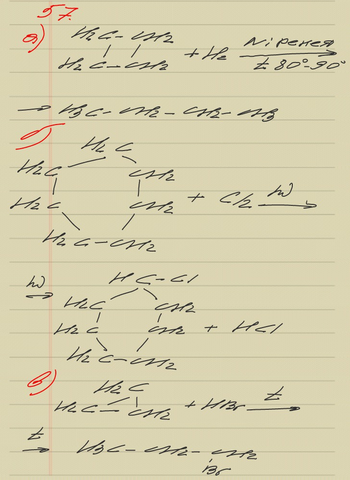 57.
а) H₂C — CH₂
H₂C — CH₂ + H₂ Ni ренея
t 80°-90°
→ H₃C — CH₂ — CH₂ — CH₃
б) H₂C
H₂C CH₂
H₂C CH₂ + Cl₂ hν →
H₂C — CH₂
hν → HC — Cl
H₂C CH₂
H₂C CH₂ + HCl
H₂C — CH₂
в) H₂C
H₂C — CH₂ + HBr t →
t → H₃C — CH₂ — CH₂
Br